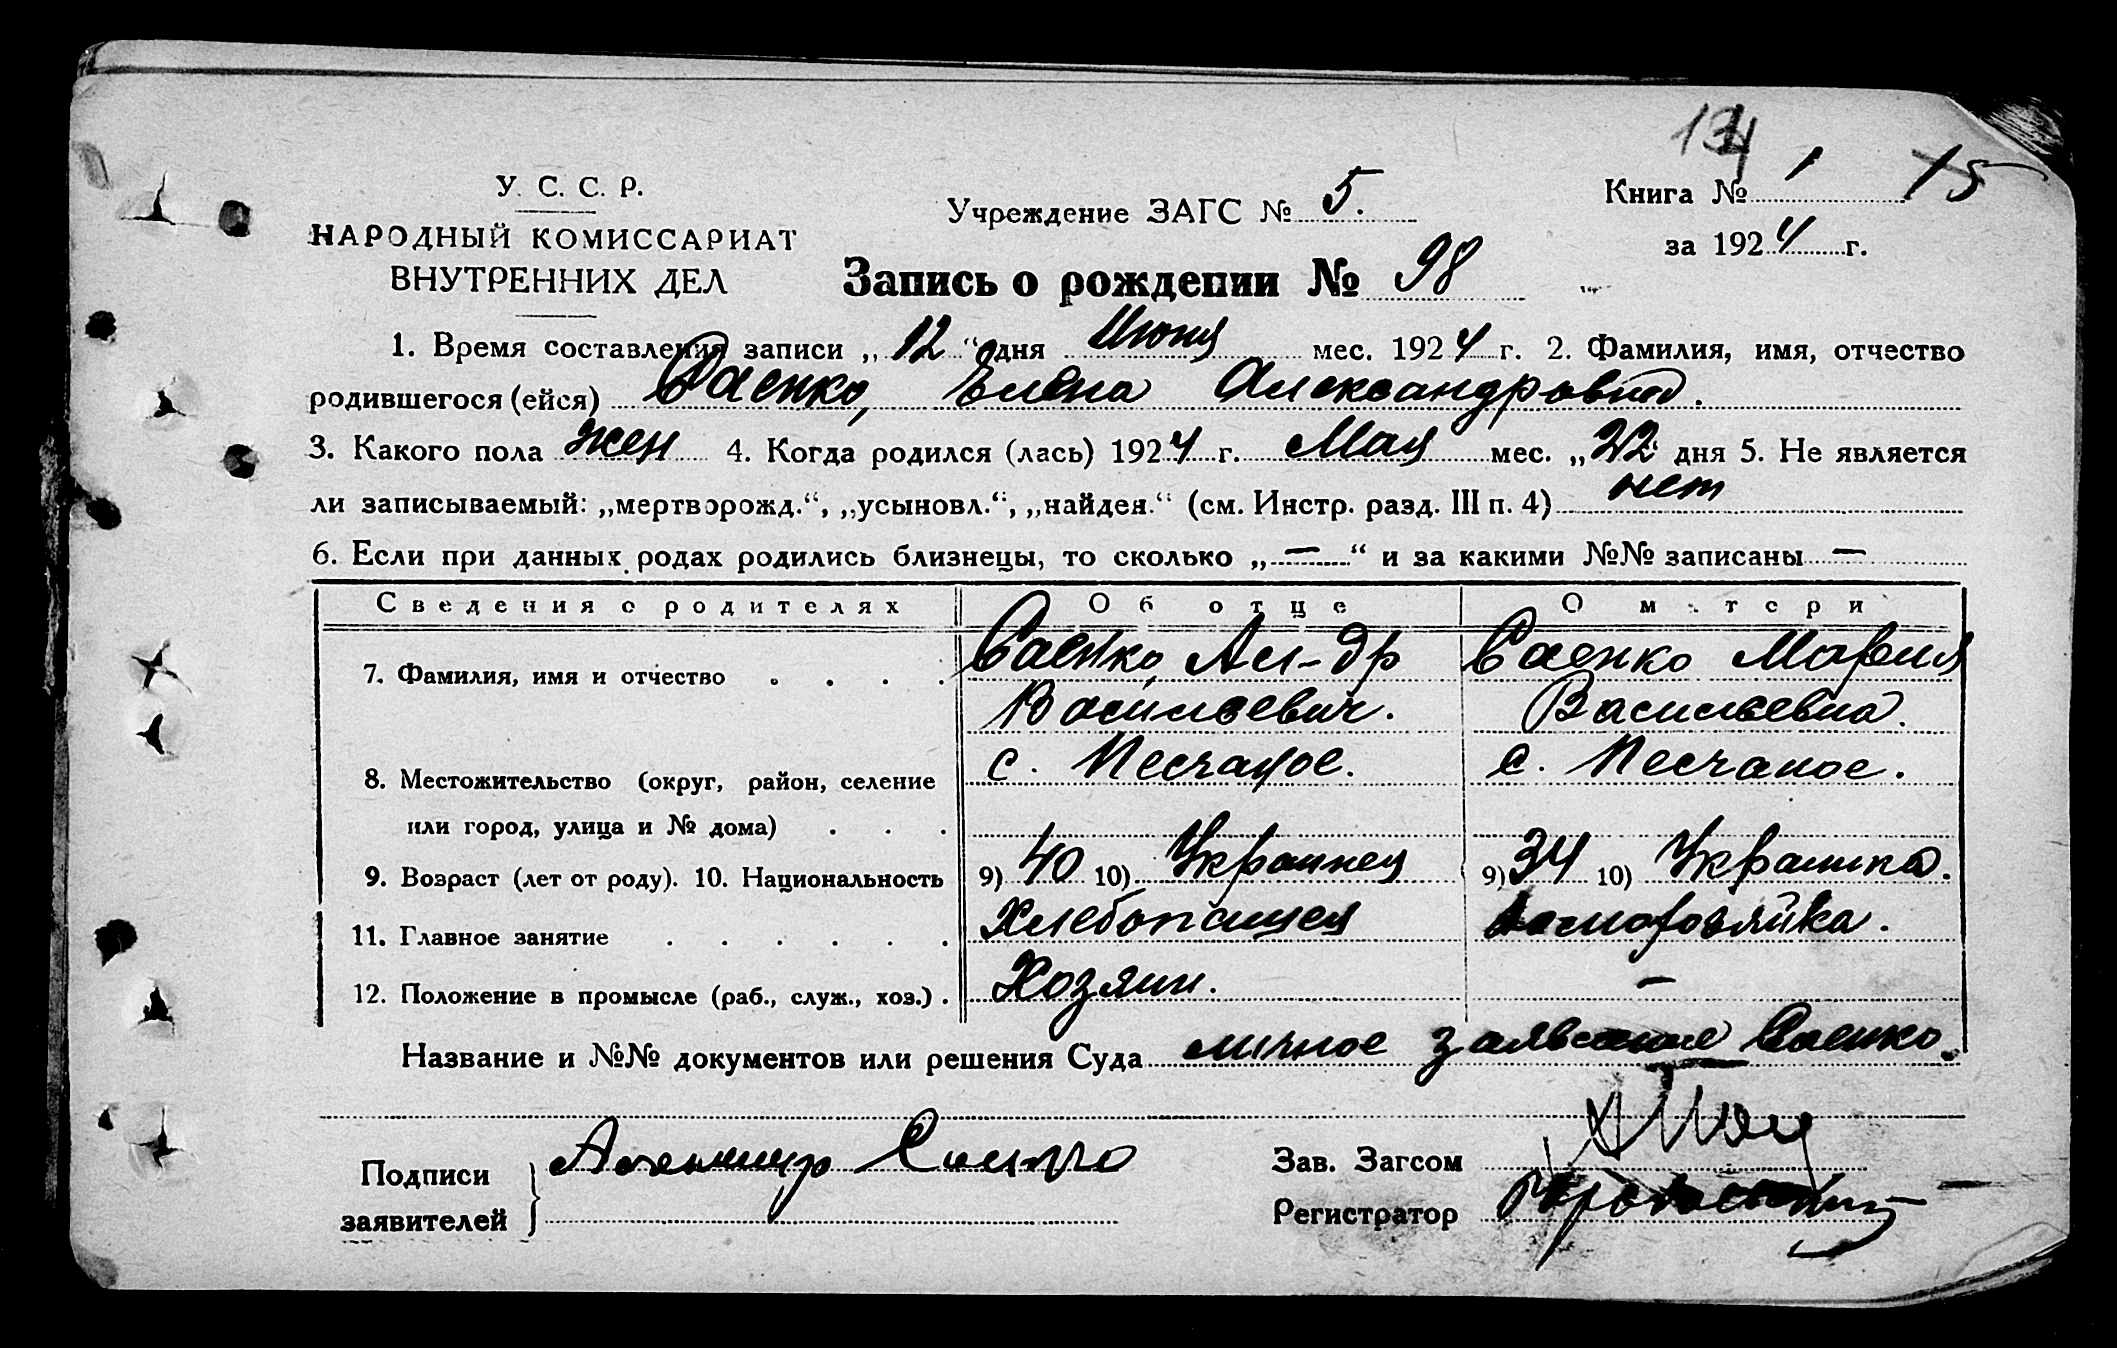 134
15
У. С. С. Р.
НАРОДНЫЙ КОМИССАРИАТ
ВНУТРЕННИХ ДЕЛ
Учреждение ЗАГС № 5.
Книга № 1
за 1924 г.
Запись о рождении № 98
1. Время составления записи „12“ дня Июня мес. 1924 г. 2. Фамилия, имя, отчество
родившегося (ейся) Саенко, Елена Александровна.
3. Какого пола жен 4. Когда родился (лась) 1924 г. Мая мес. „22“ дня 5. Не является
ли записываемый: „мертворожд.“, „усыновл.“, „найден.“ (см. Инстр. разд. III п. 4) нет
6. Если при данных родах родились близнецы, то сколько „—“ и за какими №№ записаны —
Сведения о родителях Об отце О матери
7. Фамилия, имя и отчество . . . . Саенко, Ал-др Саенко Мария
Васильевич. Васильевна.
8. Местожительство (округ, район, селение с. Песчаное. с. Песчаное.
или город, улица и № дома) . . .
9. Возраст (лет от роду). 10. Национальность 9) 40 10) Украинец 9) 34 10) Украинка.
11. Главное занятие . . . . . . Хлебопашец Домохозяйка.
12. Положение в промысле (раб., служ., хоз.) . Хозяин. —
Название и №№ документов или решения Суда личное заявление Саенко.
Подписи
заявителей
Александр Саенко
Зав. Загсом
Регистратор